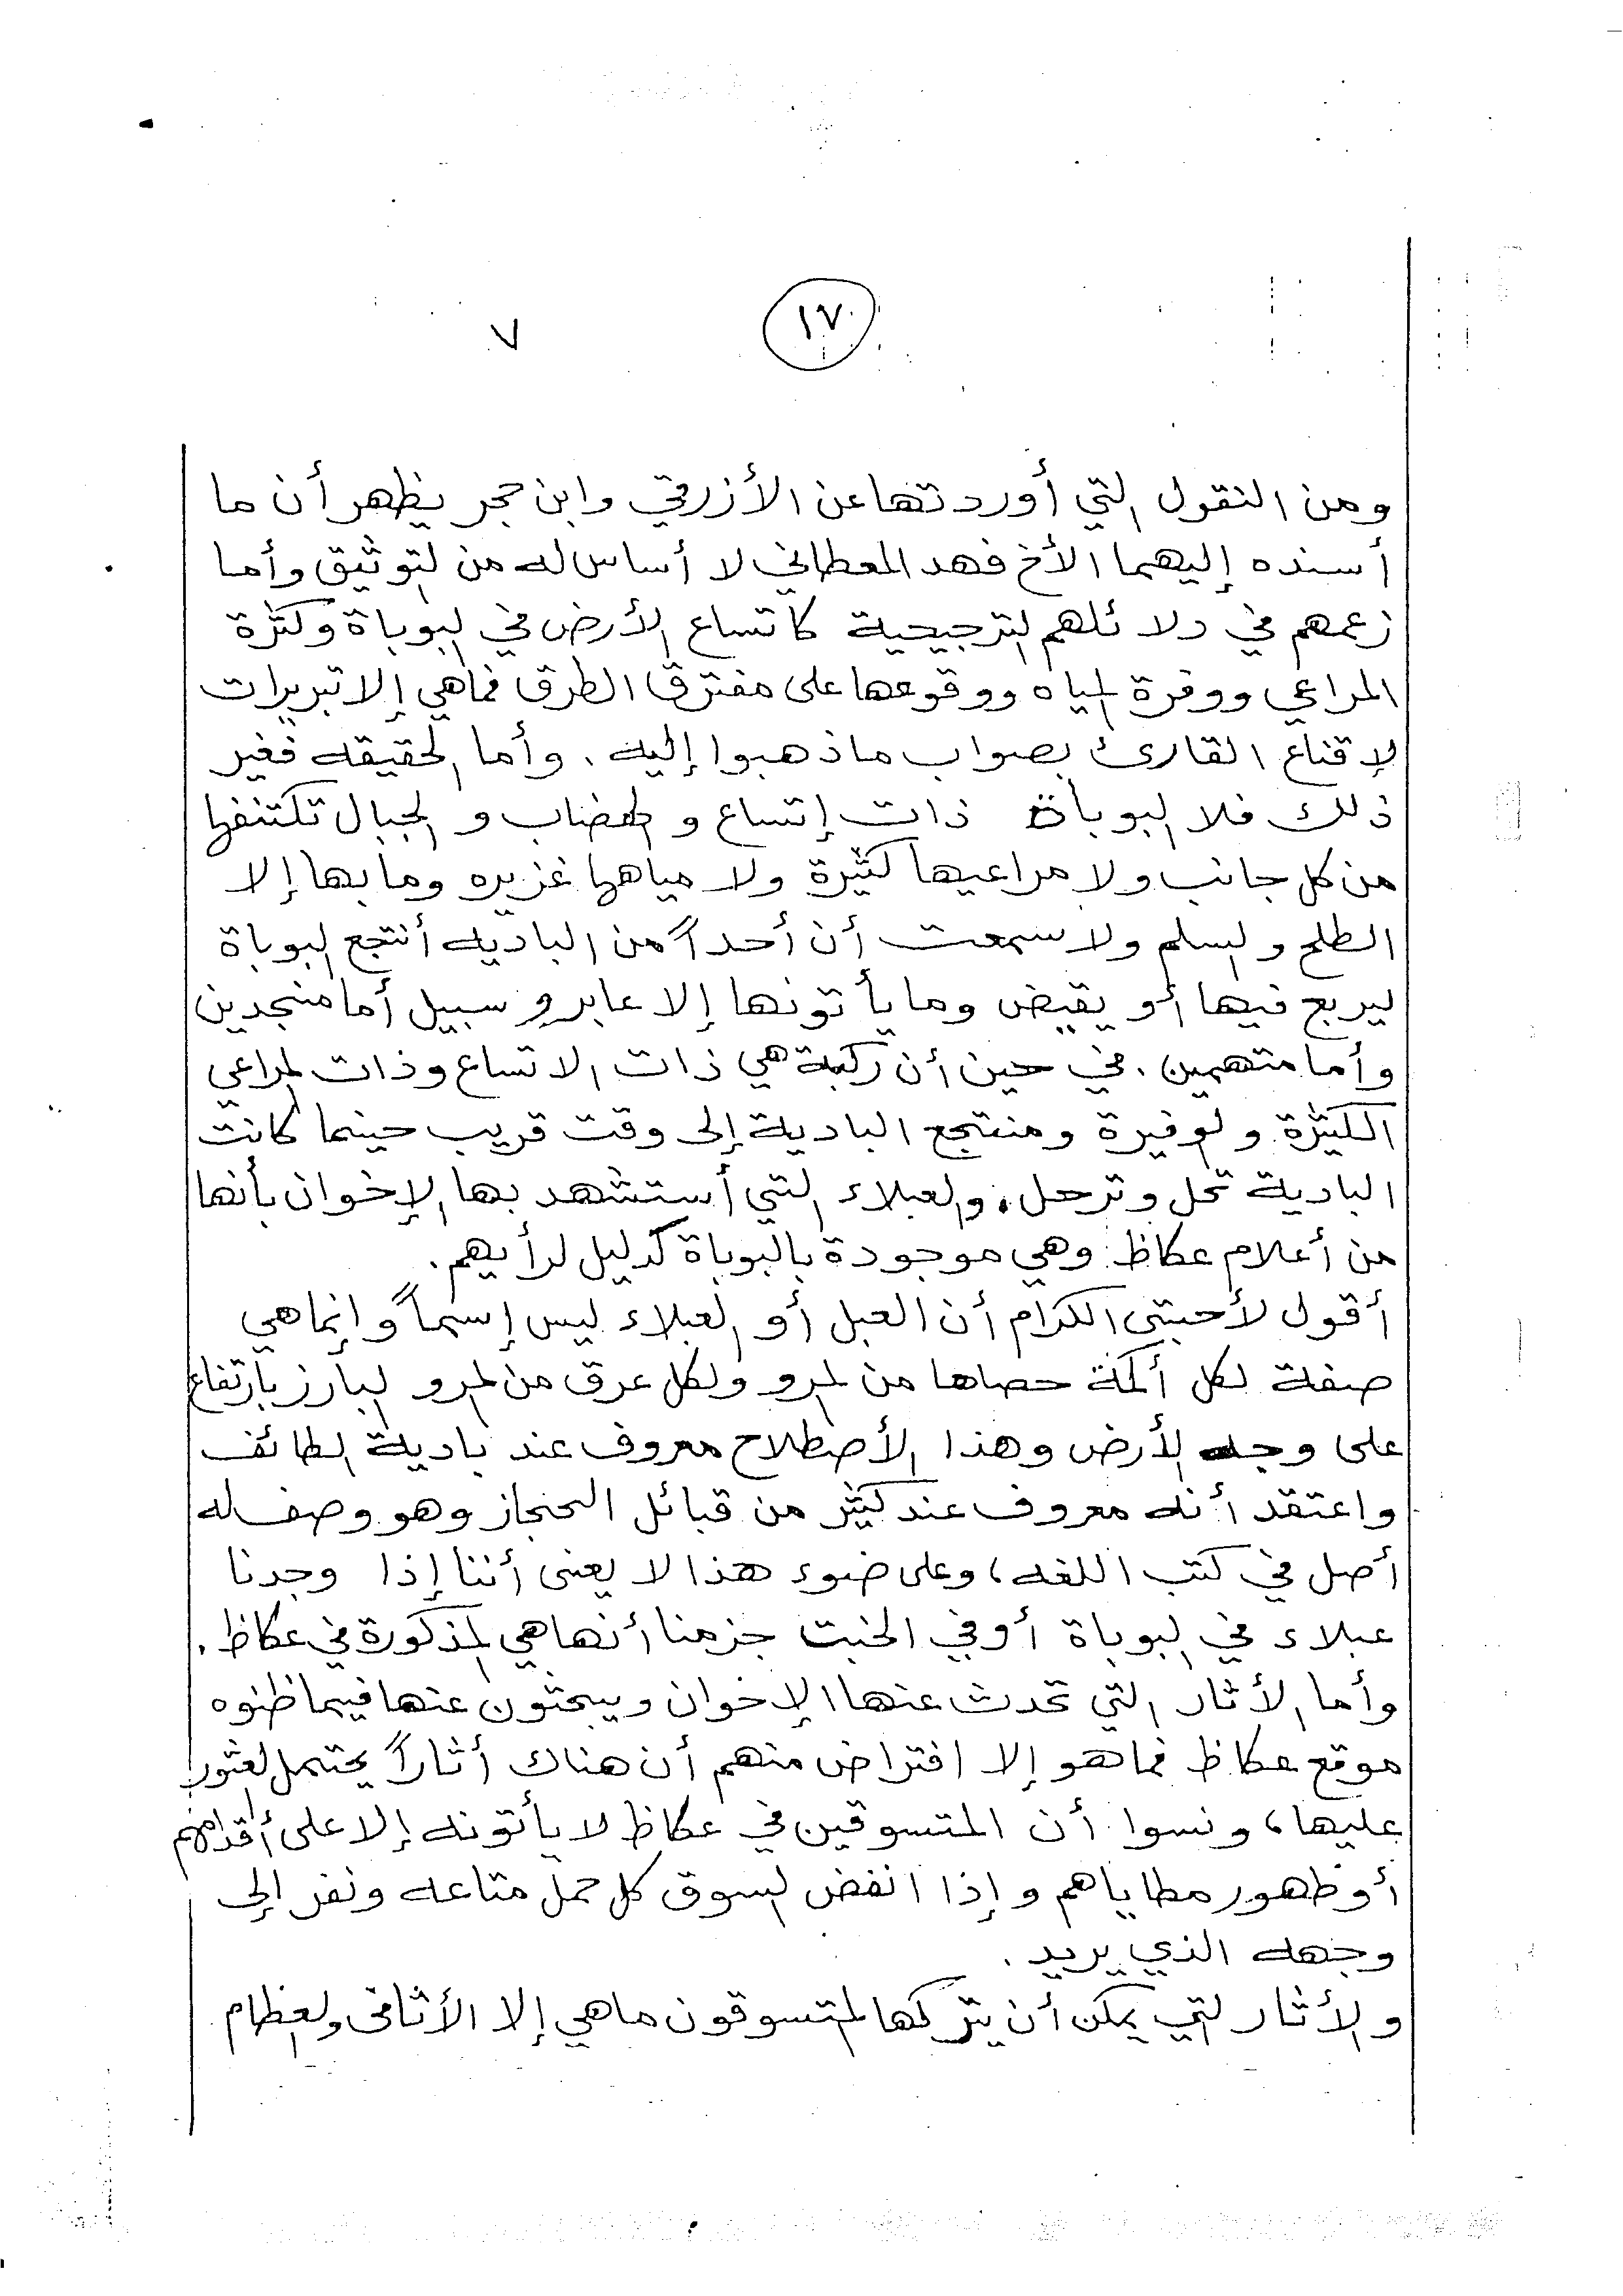 ١٧ ٧
ومن النقول التي أوردتها عن الأزرقي وابن حجر يظهر أن ما
أسنده إليهما الأخ فهد المعطاني لا أساس له من التوثيق وأما
زعمهم في دلائلهم الترجيحية كاتساع الأرض في البوباة وكثرة
المراعي ووفرة المياه ووقوعها على مفترق الطرق فماهي إلا تبريرات
لإقناع القارئ بصواب ماذهبوا إليه. وأما الحقيقه فغير
ذلك فلا البوباة ذات إتساع والهضاب والجبال تكتنفها
من كل جانب ولا مراعيها كثيرة ولا مياهها غزيره ومابها إلا
الطلح والسلم ولا سمعت أن أحداً من الباديه أنتجع البوباة
ليربع فيها أو يقيض وما يأتونها إلا عابرو سبيل أما منجدين
وأما متهمين. في حين أن ركبة هي ذات الاتساع وذات المراعي
الكثيرة والوفيرة ومنتجع البادية إلى وقت قريب حينما كانت
البادية تحل وترحل. والعبلاء التي أستشهد بها الإخوان بأنها
من أعلام عكاظ وهي موجودة بالبوباة كدليل لرأيهم.
أقول لأحبتي الكرام أن العبل أو العبلاء ليس إسماً وإنما هي
صفة لكل أكمة حصاها من المرو ولكل عرق من المرو البارز بإرتفاع
على وجه الأرض وهذا الأصطلاح معروف عند بادية الطائف
واعتقد أنه معروف عند كثير من قبائل الحجاز وهو وصف له
أصل في كتب اللغه، وعلى ضوء هذا لا يعني أننا إذا وجدنا
عبلاء في البوباة أو في الخبت جزمنا أنها هي المذكورة في عكاظ.
وأما الأثار التي تحدث عنها الإخوان ويبحثون عنها فيما ظنوه
موقع عكاظ فماهو إلا افتراض منهم أن هناك أثاراً يحتمل العثور
عليها، ونسوا أن المتسوقين في عكاظ لا يأتونه إلا على أقدامهم
أو ظهور مطاياهم وإذا انفض السوق كل حمل متاعه ونفر إلى
وجهه الذي يريد.
والأثار التي يمكن أن يتركها المتسوقون ماهي إلا الأثافى والعظام